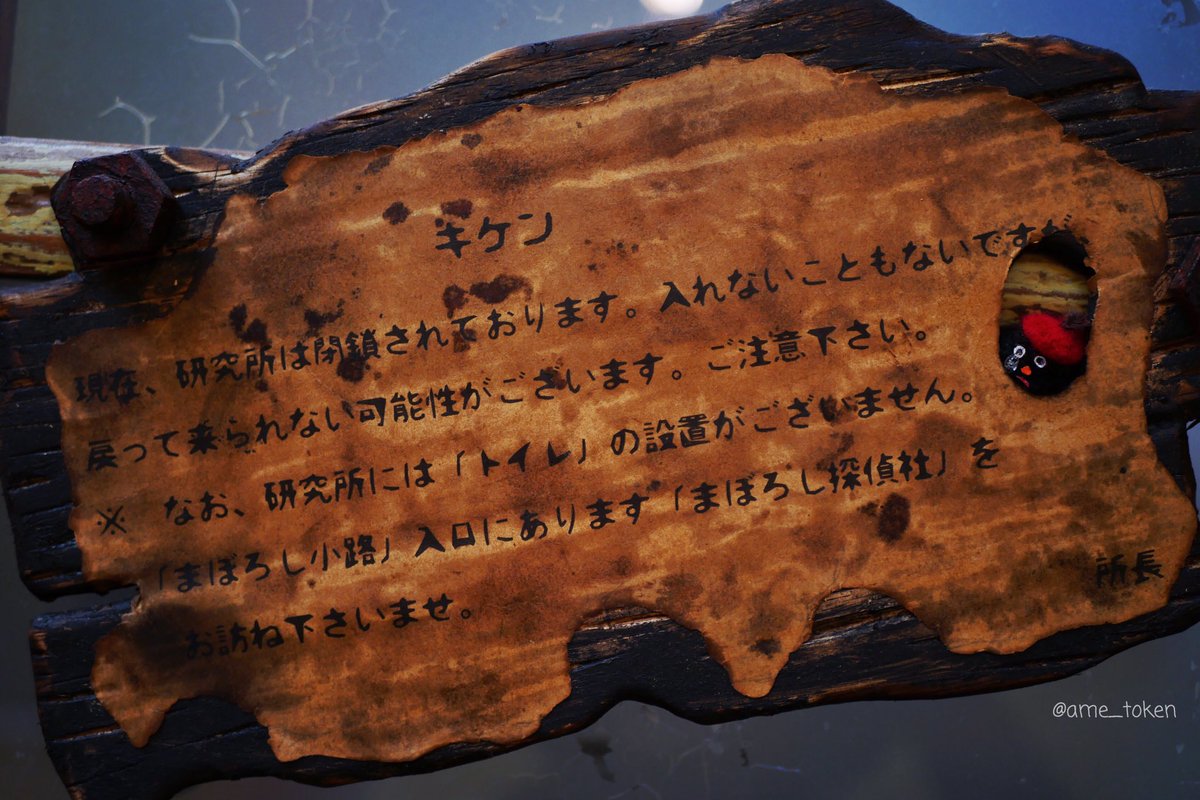 キケン
現在、研究所は閉鎖されております。入れないこともないですが、
戻って来られない可能性がございます。ご注意下さい。
※ なお、研究所には「トイレ」の設置がございません。
「まぼろし小路」入口にあります「まぼろし探偵社」を
お訪ね下さいませ。
所長
@ame_token